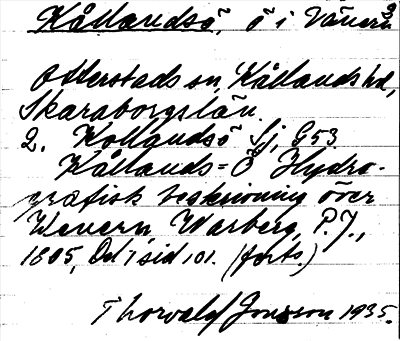 Kållandsö, ö i Vänern 3
Otterstads sn, Kållands hd,
Skaraborgs län.
2. Kollandsö Sj, G53
Kållands-Ö Hydro-
grafisk beskrivning över
Wenern Warberg, P.J.,
1805, Del 1 sid 101. (forts.)
Thorvald Jonsson 1935.